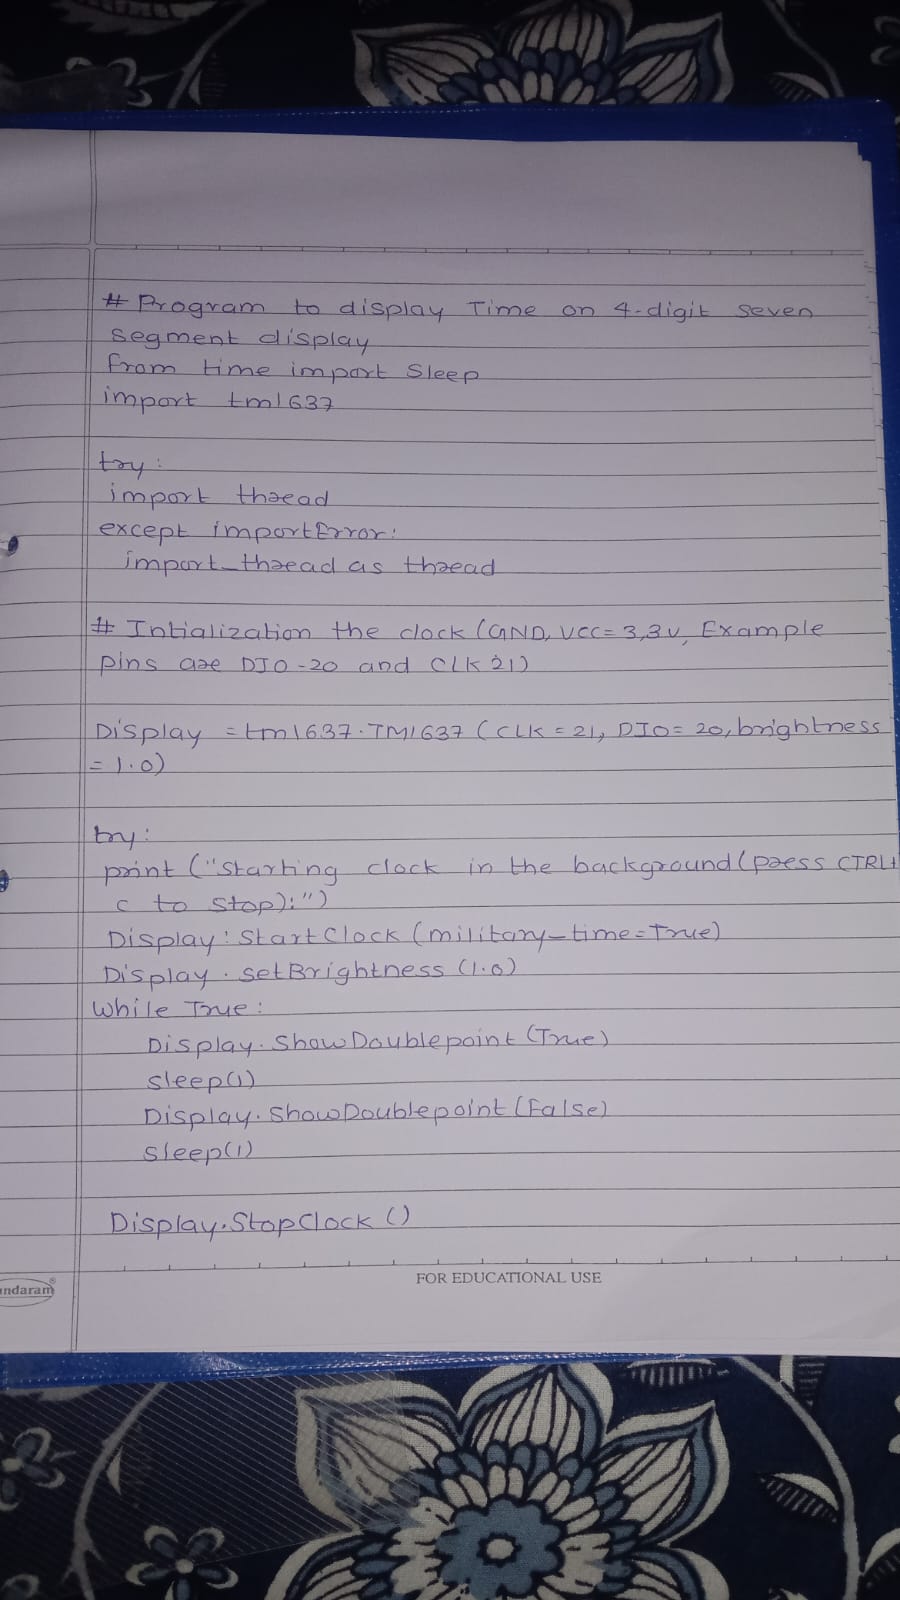 # Program to display Time on 4-digit seven
segment display
from time import Sleep
import tm1637
try:
import thread
except importError:
import_thread as thread
# Intialization the clock (GND, VCC = 3,3V, Example
pins are DIO-20 and CLK 21)
Display = tm1637.TM1637 (CLK = 21, DIO= 20, brightness
= 1.0)
try:
print ("Starting clock in the background (press CTRL+
C to stop):")
Display:StartClock (military_time=True)
Display.setBrightness (1.0)
While True:
Display.ShowDoublepoint (True)
sleep(1)
Display.ShowDoublepoint (False)
sleep(1)
Display.StopClock ()
FOR EDUCATIONAL USE
ndaram®